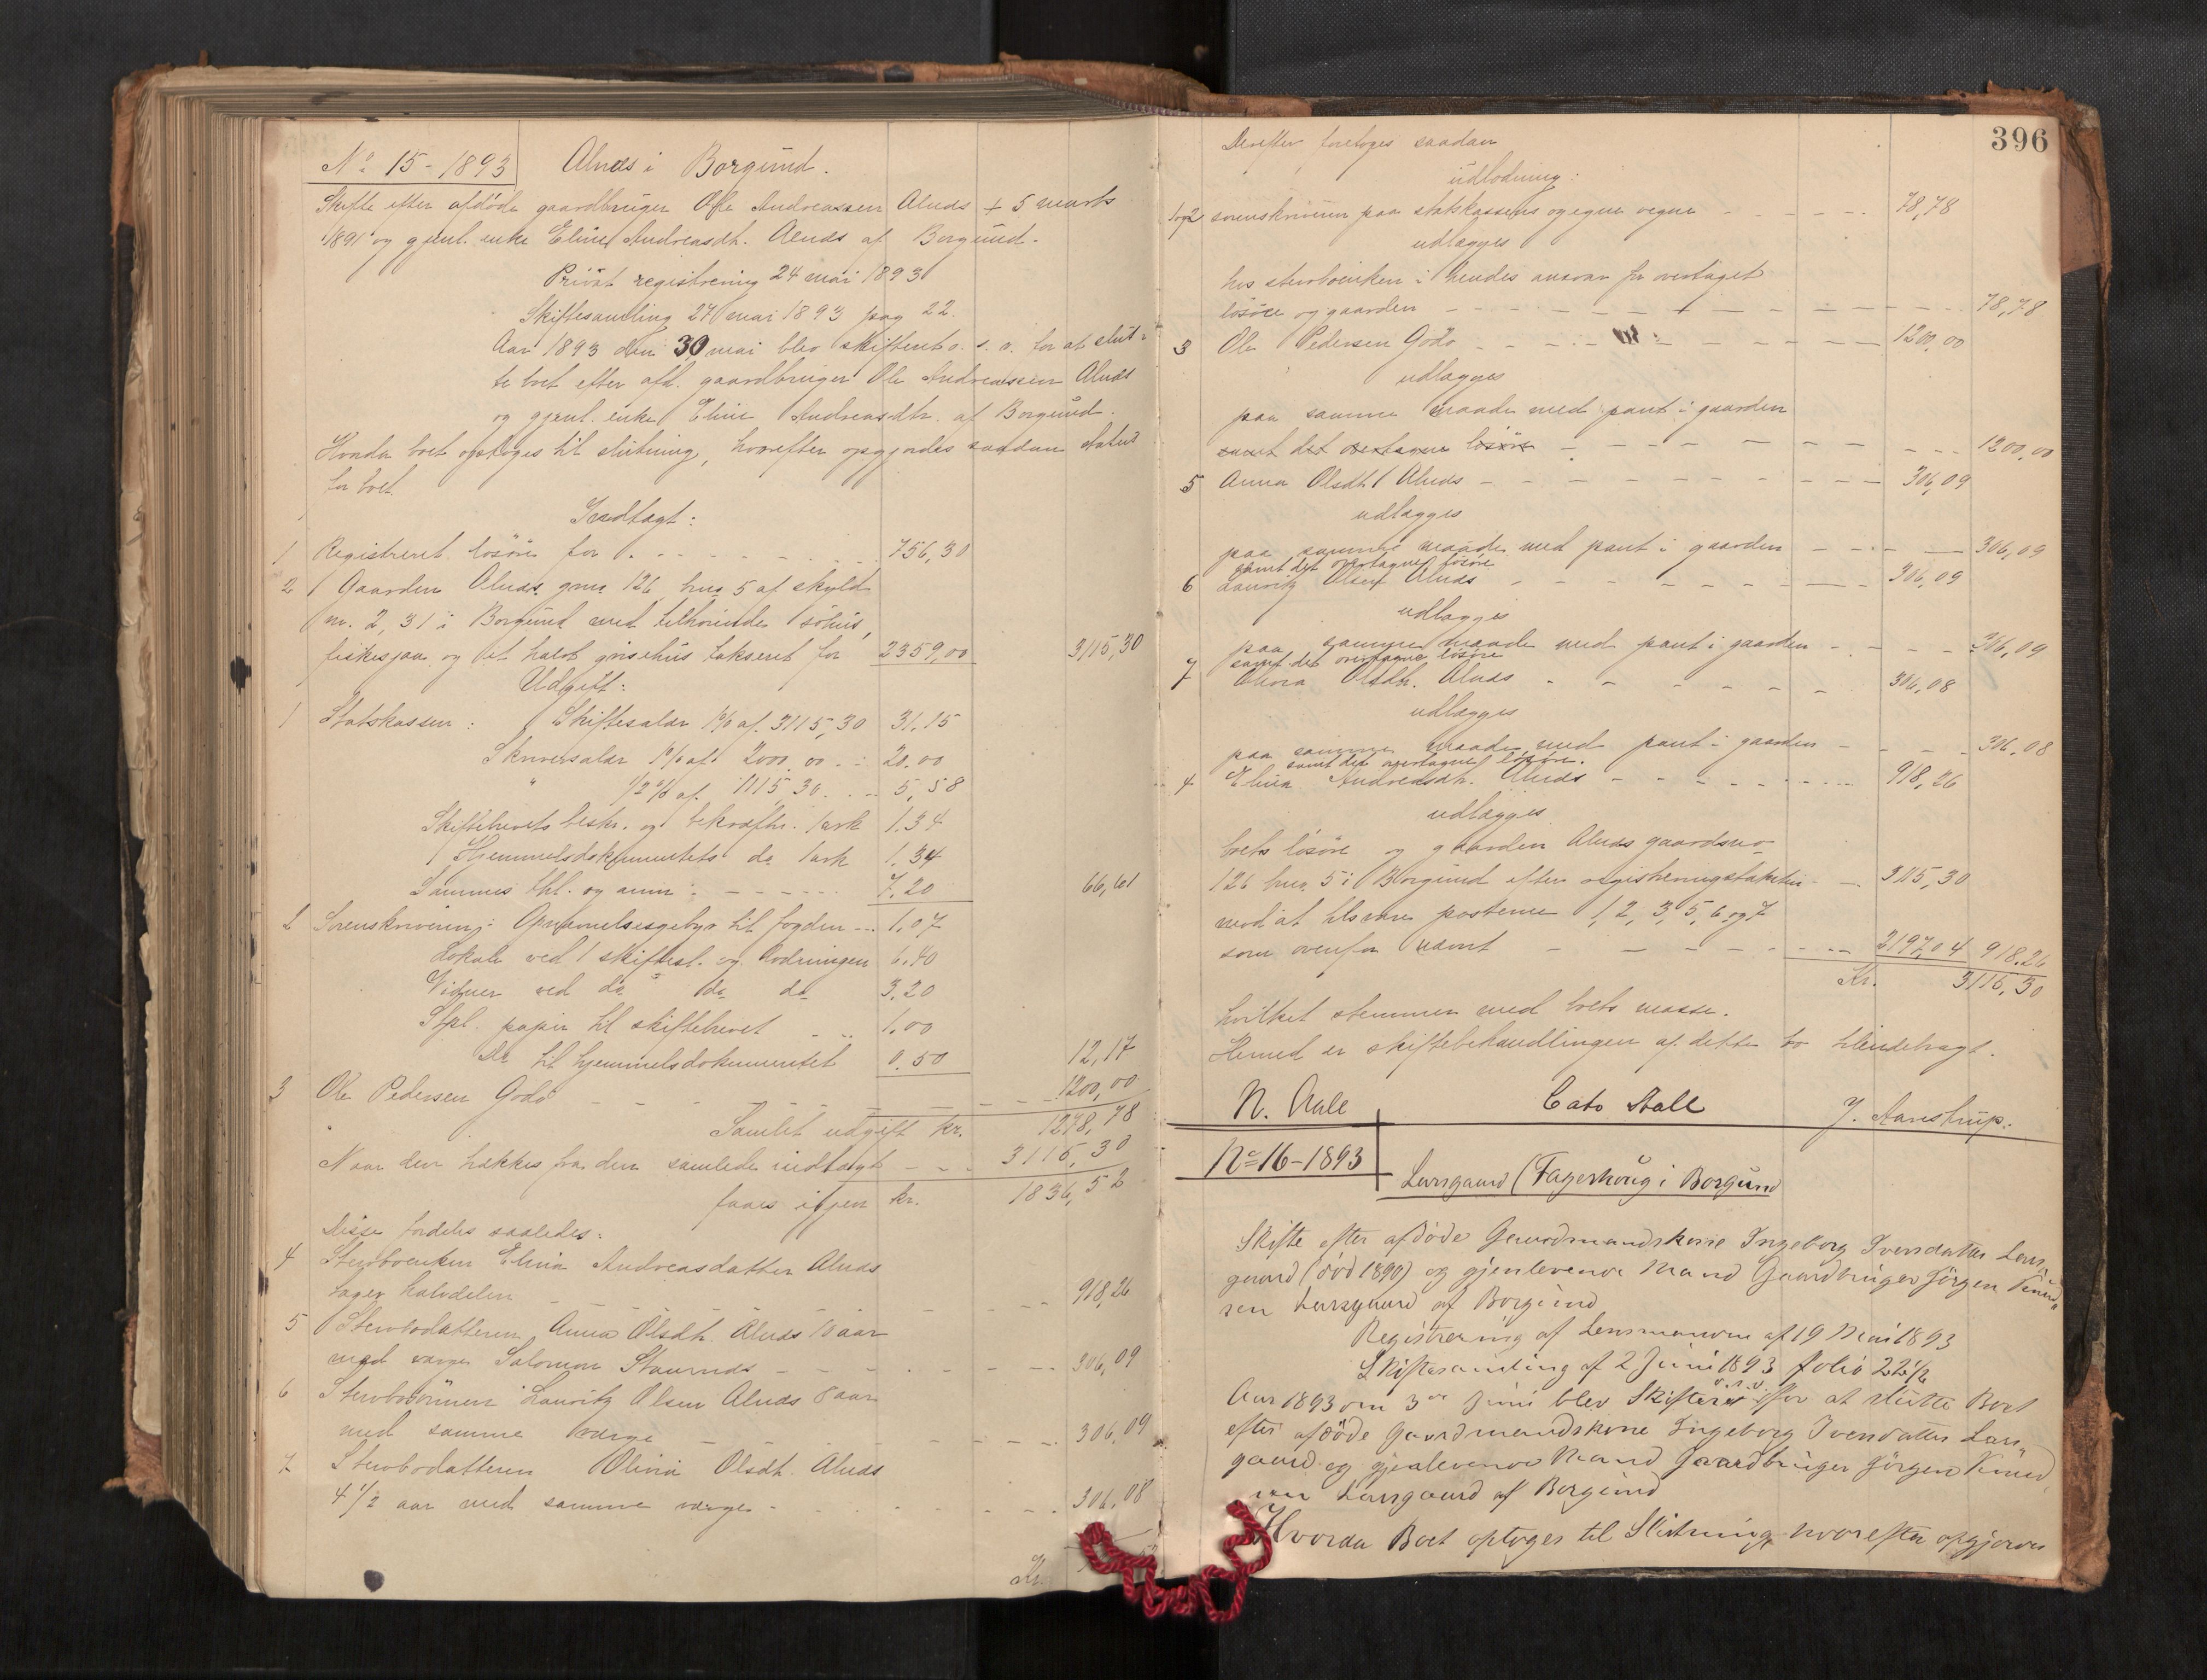 No 15 - 1893 Alnæs i Borgund.
Skifte efter afdöde gaardbruger Ole Andreassen Alnæs + 5 marts
1891 og gjenl. enke Eline Andreasdt. Alnæs af Borgund.
Privat registrering 24 mai 1893
Skiftesamling 27 mai 1893 pag 22.
Aar 1893 den 30 mai blev skifteret o. s. v. for at slut-
te boet efter afd. gaardbruger Ole Andreassen Alnæs
og gjenl. enke Eline Andreasdtr. af Borgund.
Hvorda boet optoges til slutning, hvorefter opgjordes saadan status
for boet
Indtægt:
1 Registreret lösöre for . - - - - 756,30
2 Gaarden Alnæs gno 126 bno 5 af skyld
m. 2,31 i Borgund med tilhörende söhus,
fiskesjaa og et halvt grisehus takseret for 2359,00 3115,30
Udgift:
1 Statskassen: Skiftesalær 1% af 3115,30 31.15
Skriversalær 1% af 2000.00 . - 20.00
" 1/2% af 1115,30 . . - 5,58
Skiftebrevets beskr. og bekræftn. 1 ark 1.34
Hjemmelsdokumentets do 1 ark 1.34
Sammes thl. og anm: - - - - - 7.20 66,61
2 Sorenskriveren: Opnævnelsesgebyr til fogden - - 1.07
Lokale ved 1 skiftesl. og lodningen 6.40
Vidner ved do do do 3.20
Stpl. papir til skiftebrevet - - - 1.00
Do til hjemmelsdokumentet 0.50 12,17
3 Ole Pedersen Godö - - - - - 1200,00
Samlet udgift kr. 1278,78
Naar den trækkes fra den samlede indtægt - - - 3115,30
faaes igjen kr. 1836,52
Disse fordeles saaledes:
4 Stervboenken Elina Andreasdatter Alnæs
tager halvdelen - - - - - 918,26
5 Stervbodatteren Anna Olsdt. Alnæs 10 aar
med verge Salomon Staurnæs - - - - - 306,09
6 Stervbosönnen Lauritz Olsen Alnæs 8 aar
med samme verge - - - - - 306,09
7 Stervbodatteren Olivia Olsdt. Alnæs
4 1/2 aar med samme verge - - - - - 306,08
Kr.
396
Derefter foretoges saadan
udlodning:
1og2 sorenskriveren paa statskassens og egne vegne - - - - - 78,78
udlægges
hos stervboenken i hendes ansvar for overtaget
lösöre og gaarden - - - - - 78,78
3 Ole Pedersen Godö - - - - - 1200,00
udlægges
paa samme maade med pant i gaarden
samt det overtagne lösöre - - - - - 1200,00
5 Anna Olsdt. Alnæs - - - - - 306,09
udlægges
paa samme maade med pant i gaarden - - - - 306,09
samt det overtagne lösöre
6 Lauritz Olsen Alnæs - - - - - 306,09
udlægges
paa samme maade med pant i gaarden - - - - 306,09
samt det overtagne lösöre
7 Olivia Olsdtr. Alnæs - - - - - 306,08
udlægges
paa samme maade med pant i gaarden - - - - 306,08
samt det overtagne lösöre.
4 Elina Andreasdt. Alnæs - - - - - 918,26
udlægges
boets lösöre og gaarden Alnæs gaardsno
126 bno. 5 i Borgund efter registreringstaksten - - 3115,30
mod at tilsvare posterne 1, 2, 3, 5, 6 og 7
som ovenfor nævnt - - - - - 2197,04 918.26
Kr. 3115,30
hvilket stemmer med boets masse.
Hermed er skiftebehandlingen af dette bo tilendebragt.
N. Aale Cato Aall J. Aanstrup.
No 16 - 1893
Larsgaard (Fagerhoug i Borgund
Skifte efter afdöde Gaardmandskone Ingeborg Iversdatter Lars„
gaard (död 1890) og gjenlevende Mand Gaardbruger Jörgen Knud„
sen Larsgaard af Borgund
Registrering af Lensmanden af 19 Mai 1893
Skiftesamling af 2 Juni 1893 folio 22 1/2
Aar 1893 den 3de Juni blev Skifteret o.s.v. for at slutte Boet
efter afdöde Gaardmandskone Ingeborg Iversdatter Lars„
gaard og gjenlevende Mand Gaardbruger Jörgen Knud„
sen Larsgaard af Borgund
Hvorda Boet optoges til Slutning, hvorefter opgjordes